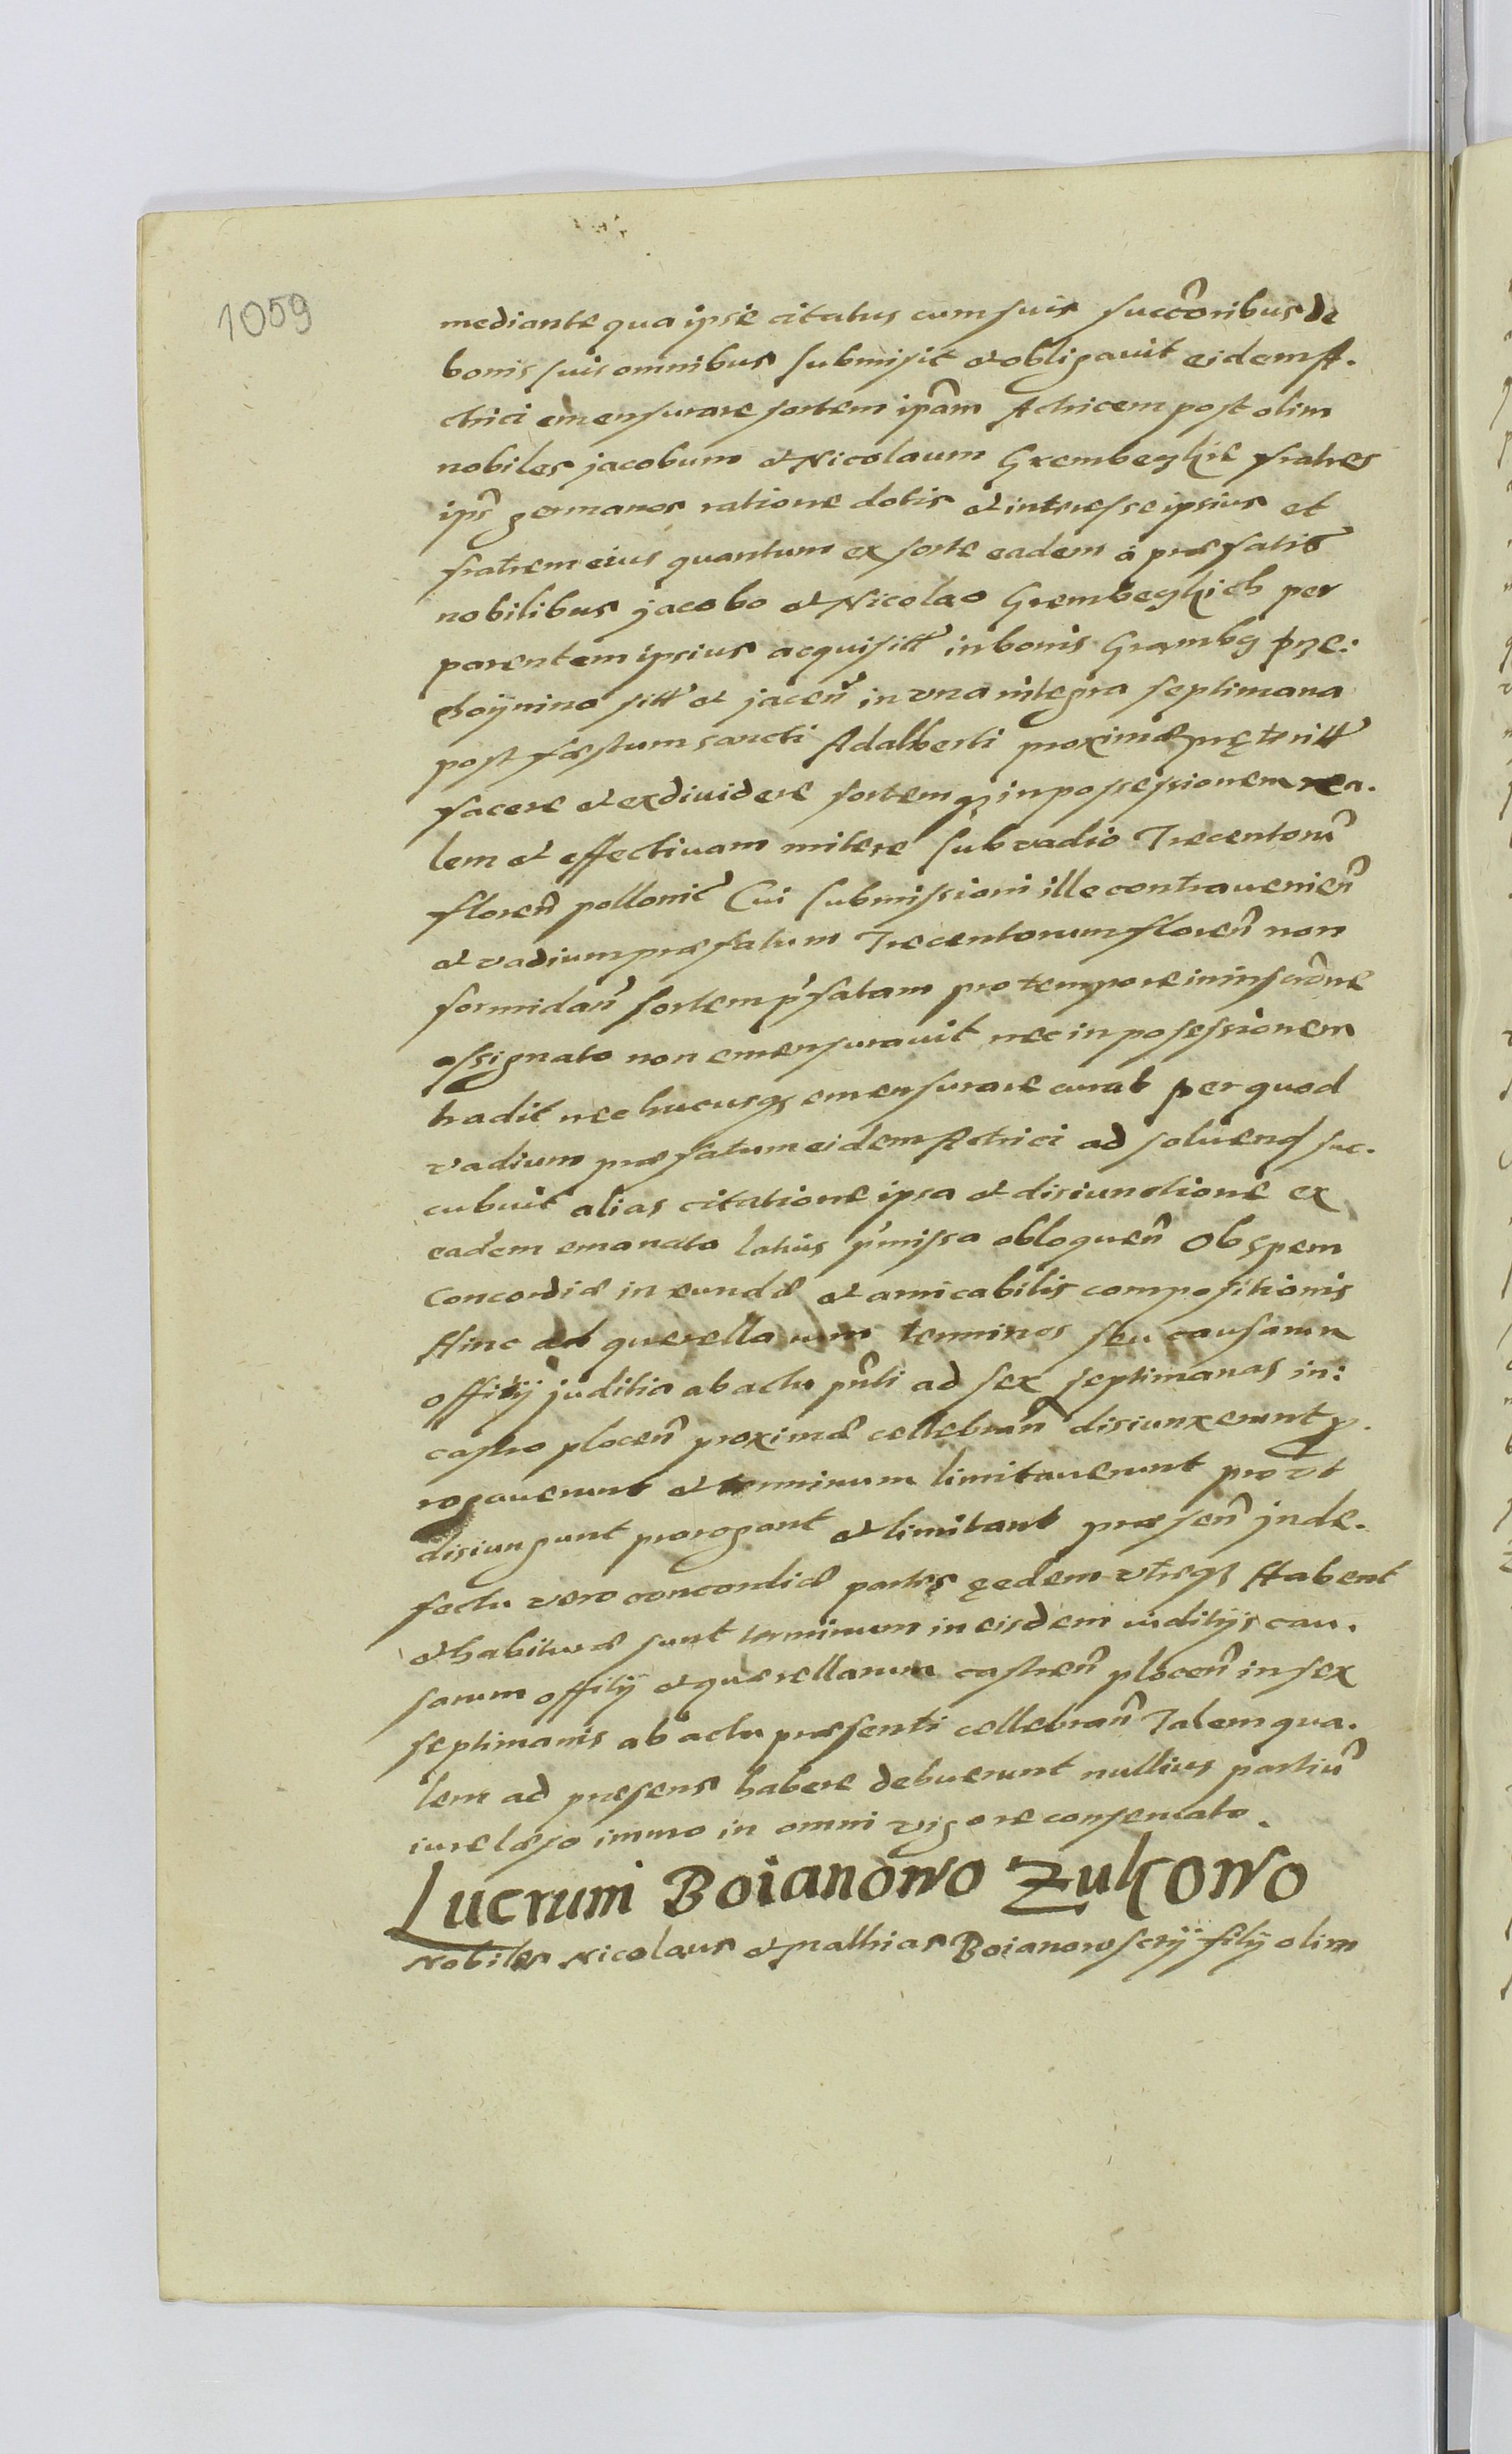 1059
mediante qua ipse citatus cum suis succ̃oribus de
bonis suis omnibus submisit et obligauit eidem A.
ctrici emensurare sortem ip̃am Actricem post olim
nobiles jacobum et Nicolaum Grembeczkie fratres
ips̃ germanos ratione dotis et interesse ipsius et
fratrem eius quantum ex sorte eadem à præfatis
nobilibus jacobo et Nicolao Grembeczkich per
parentem ipsius acquisitt̃ in bonis Grambg prze:
choijnino sitt̃ et jaceñ in vna integra septimana
post fæstum sancti Adalberti proximæ pręteritt̃
facere et exdiuidere sortemq₃ in possessionem rea.
lem et effectiuam mitere sub vadio Trecentorũ
floreñ pollonic̃ Cui submissioni ille contrauenieñ
et vadium præfatum Trecentorum floreñ non
formidañ sortem p̃fatam pro tempore in inscr̃one
assignato non emensurauit nec in posessionem
tradit nec hucusq₃ emensurare curat per quod
vadium præfatum eidem Actrici ad soluend suc.
cubuit alias citatione ipsa et disiunctione ex
eadem emanata latius p̃missa obloqueñ Ob spem
Concordiæ in eundæ et amicabilis compositionis
Hinc ad querellarum terminos seu causarum
offitij juditia ab actu pñti ad sex septimanas in:
castro ploceñ proximæ cellebrañ disiunxerunt p.
rogauerunt et terminum limitauerunt pro vt
disiungunt prorogant et limitant præseñ jnde.
fectu vero concordiæ partes ęedem vtreq₃ Habent
et habituræ sunt terminum in eisdem iuditijs cau.
sarum offitij et quærellarum castreñ ploceñ in sex
septimanis ab actu præsenti cellebrañ Talem qua.
lem ad præsens habere debuerunt nullius partiũ
iure læso immo in omni vigore conseruato.
Lucrum Boianowo Zukowo
Nobiles Nicolaus et Mathias Boianowscij filij olim